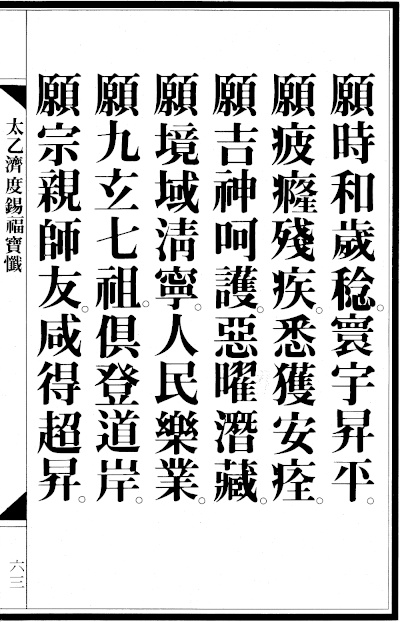 願時和歲稔。寰宇昇平。
願疲癃殘疾。悉獲安痊。
願吉神呵護。惡曜潛藏。
願境域淸寧。人民樂業。
願九玄七祖。俱登道岸。
願宗親師友。咸得超昇。
太乙濟度錫福寶懺
六三